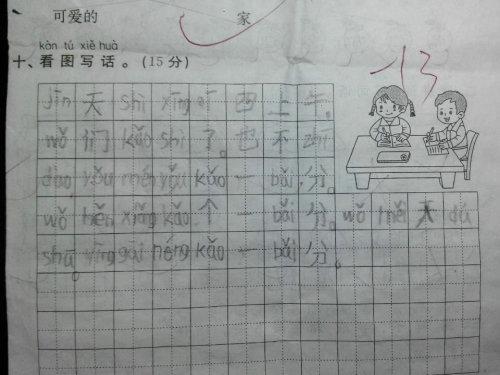 可爱的 家
kàn tú xiě huà
十、看图写话。(15分)
-13
jīn 天 shì xīng qī 四 上 午。
wǒ 们 kǎo shì 了。也 不 zhī
dào yǒu méi yǒu kǎo 一 bǎi 分。
wǒ hěn xiǎng kǎo 个 一 bǎi 分。wǒ měi 天 dú
shū。yīng gāi néng kǎo 一 bǎi 分。